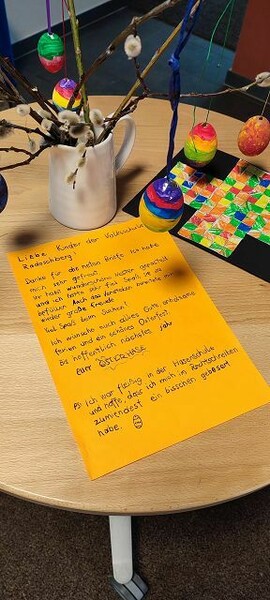 Liebe Kinder der Volksschule
Radochsberg!
Danke für die netten Briefe. Ich habe
mich sehr gefreut.
Ihr habt wunderschöne Nester gebastelt
und ich hatte sehr viel Spaß, sie zu
befüllen. Auch das Verstecken bereitete mir
wieder große Freude.
Viel Spaß beim Suchen!
Ich wünsche euch alles Gute, erholsame
Ferien und ein schönes Osterfest.
Bis hoffentlich nächstes Jahr
Euer OSTERHASE
PS: Ich war fleißig in der Hasenschule
und hoffe, dass ich mich im Rechtschreiben
zumindest ein bisschen gebessert
habe.